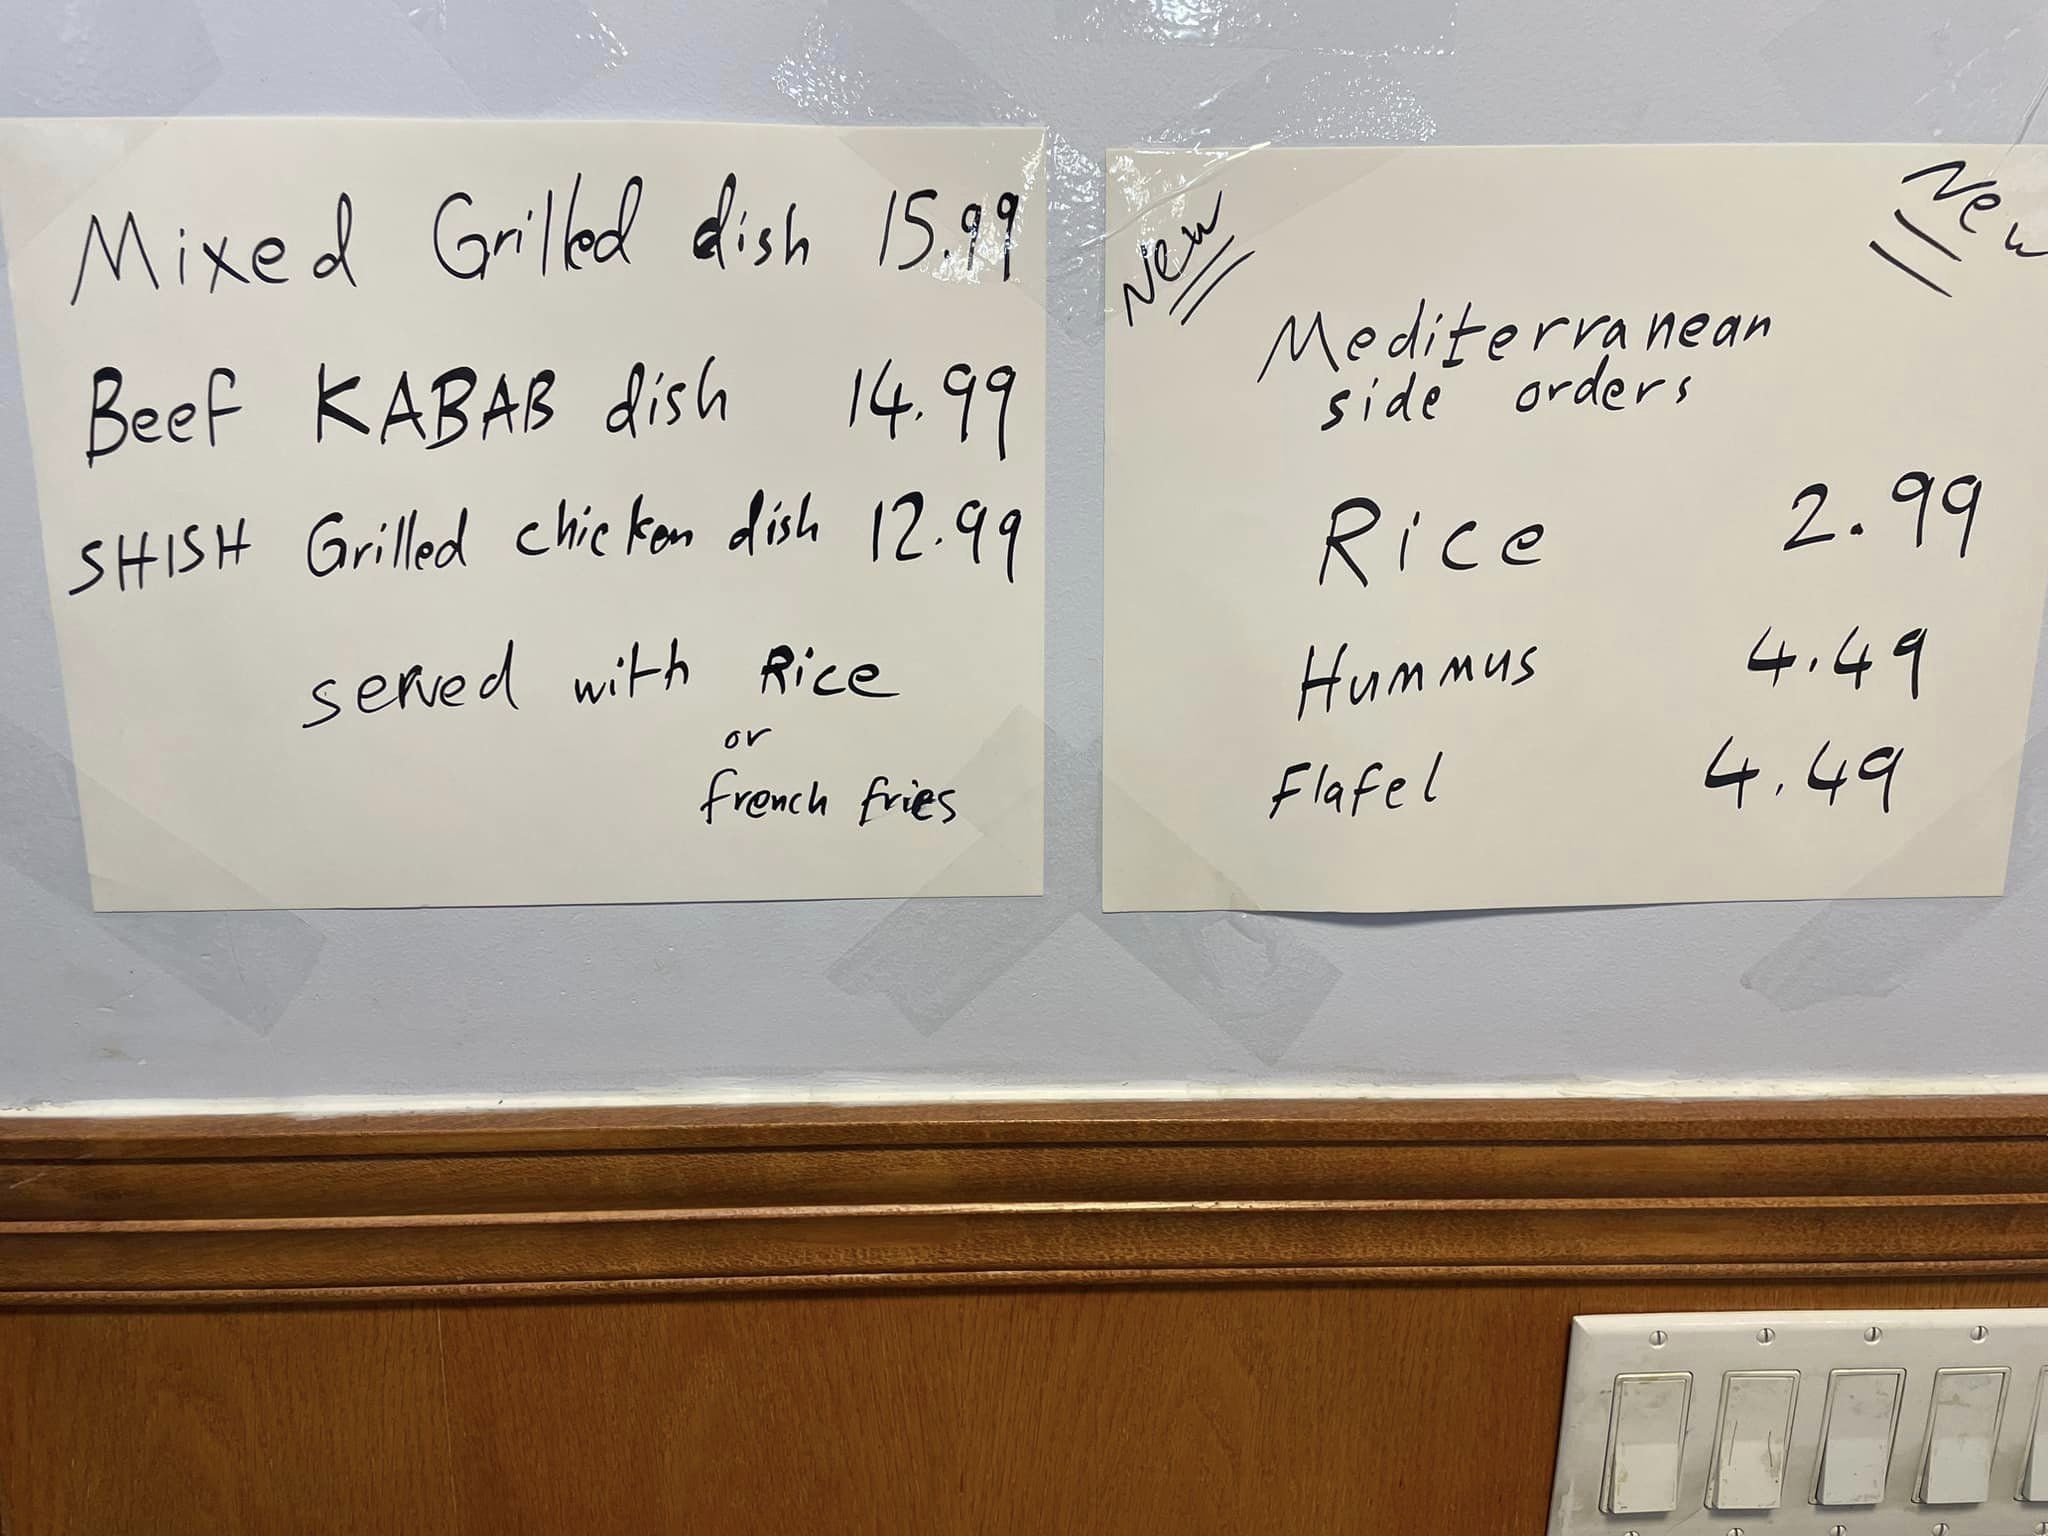 Mixed Grilled dish 15.99
Beef KABAB dish 14.99
SHISH Grilled chicken dish 12.99
served with Rice
or
french fries
New
New
Mediterranean
side orders
Rice 2.99
Hummus 4.49
Flafel 4.49